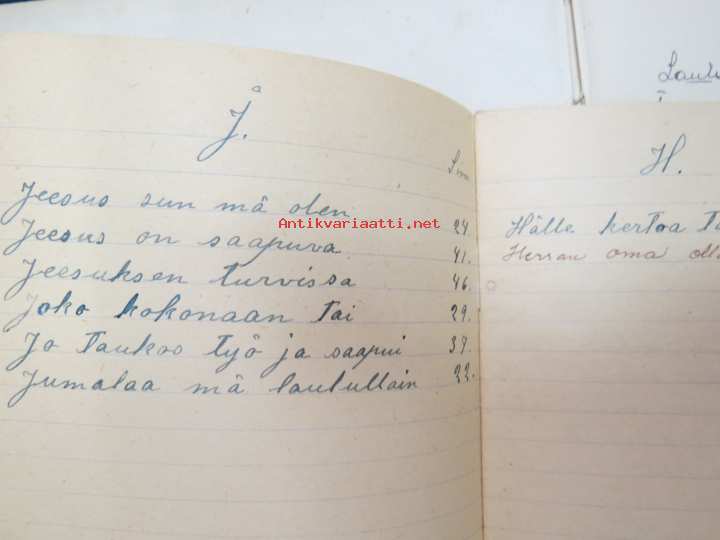 J.
Siv.
Jeesus sun mä olen 24
Antikvariaatti.net
Jeesus on saapuva 41.
Jeesuksen turvissa 46.
Joko kokonaan tai 29.
Jo taukoo työ ja saapui 37.
Jumalaa mä laulullain 22.
Laulu
H.
Hälle kertoa
Herran oma